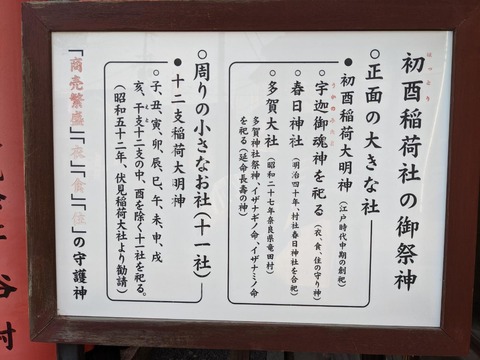 初酉稲荷社の御祭神
はつとり
○正面の大きな社
●初酉稲荷大明神（江戸時代中期の創祀）
○宇迦御魂神を祀る（衣、食、住の守り神）
うかのみたま
○春日神社（明治四十年、村社春日神社を合祀）
○多賀大社（昭和二十七年奈良県竜田村）
多賀神社祭神、イザナギノ命、イザナミノ命
を祀る（延命長壽の神）
○周りの小さなお社（十一社）
●十二支稲荷大明神
○子、丑、寅、卯、辰、巳、午、未、申、戌
亥、干支十二支の中、酉を除く十一社を祀る。
えと
（昭和五十二年、伏見稲荷大社より勧請）
「商売繁盛」「衣」「食」「住」の守護神
谷村